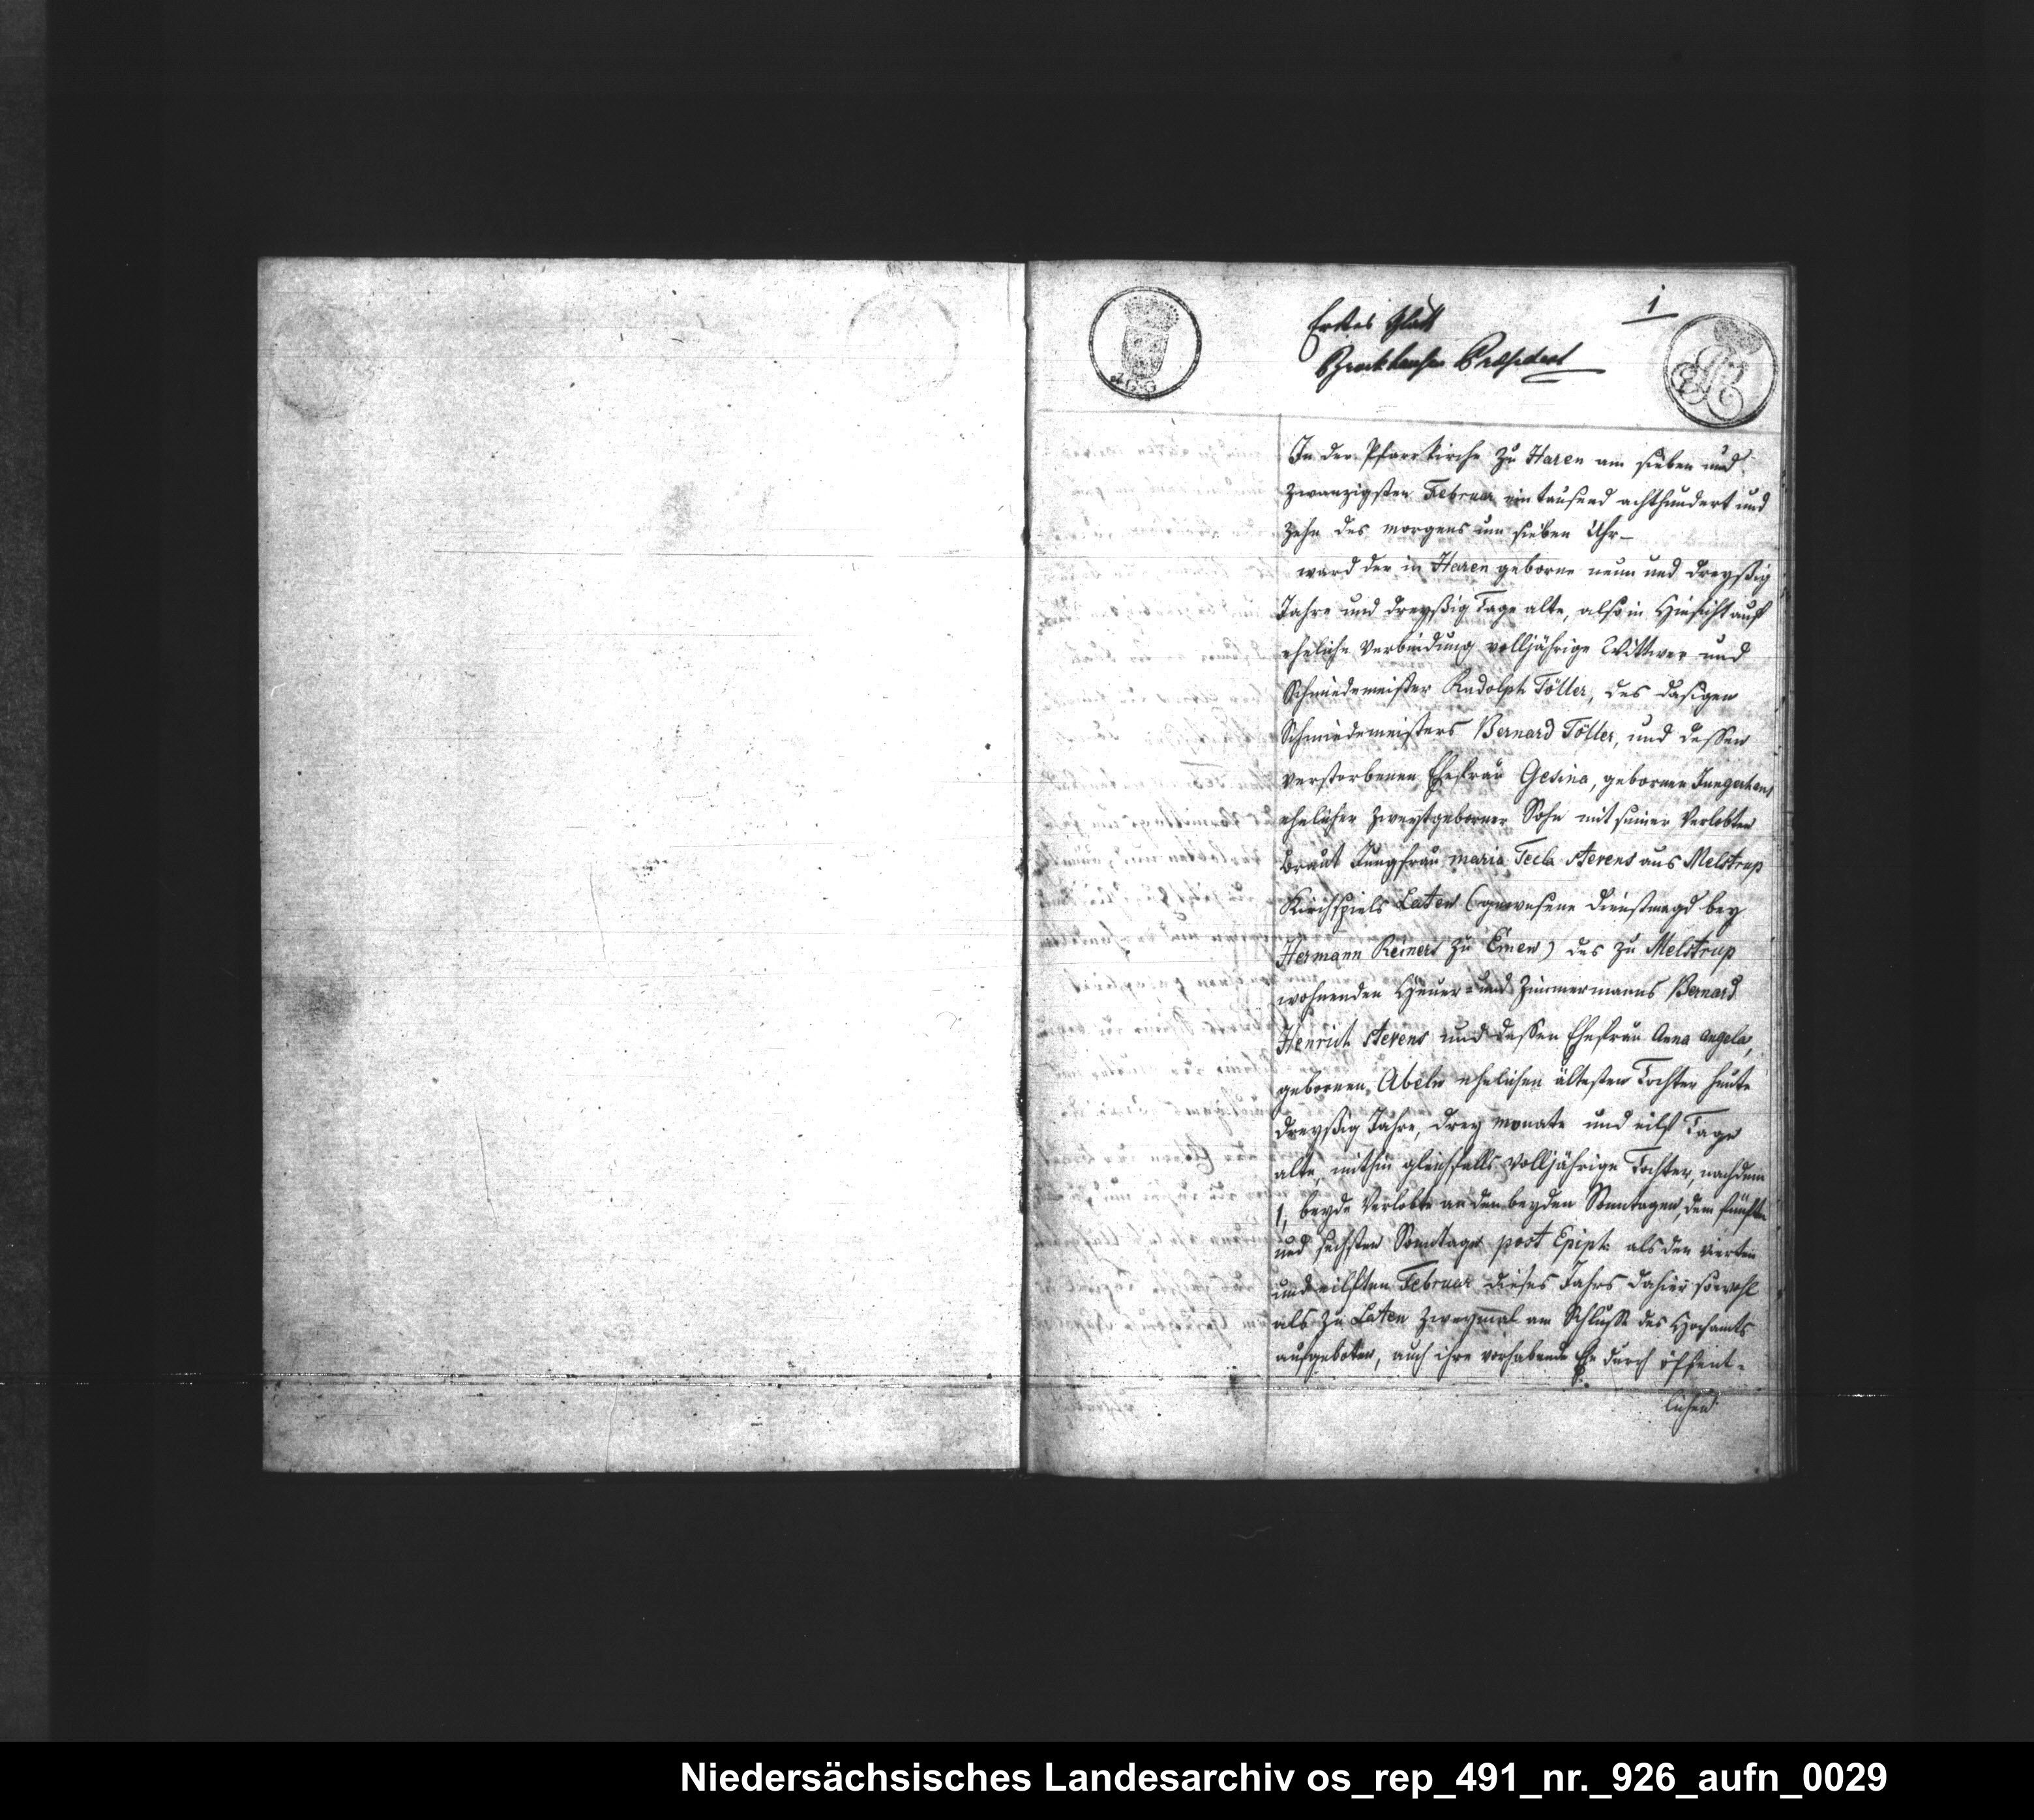 1
Erstes Blatt
Præsident
A G·G
In der Pfarrkirche zu Haren am sieben und
zwanzigsten Februar eintausend achthundert und
zehn des morgens um sieben Uhr –
ward der in Haren geborne neun und dreyßig
Jahre und dreyßig Tage alte, also in Hinsicht auf
eheliche Verbindung volljährige Wittwer und
Schmiedemeister Rudolph Töller, des dasigen
Schmiedemeisters Bernard Töller, und dessen
verstorbenen Ehefrau Gesina, gebornen
ehelicher zweytgeborner Sohn mit seiner Verlobten
Braut Jungfrau Maria Tecla Stevens aus Melstrup
Kirchspiels Laten (gewesene Dienstmagd bey
Hermann Reiners zu Emen) des zu Melstrup
wohnenden Heuer- und Zimmermanns Bernard
Henrich Stevens und dessen Ehefrau Anna Angela,
gebornen Abeln ehelichen ältesten Tochter heute
dreyßig Jahre, drey Monate und eilf Tage
alte, mithin gleichfalls volljährige Tochter, nachdem
1, beyde Verlobte an den beyden Sonntagen, dem fünften
und sechsten Sonntage post Epiph. als den vierten
und eilften Februar dieses Jahrs dahier sowohl
als zu Laten zweymal am Schluße des Hochamts
aufgeboten, auch ihre vorhabende Ehe durch öffent-
lichen
Niedersächsisches Landesarchiv os_rep_491_nr._926_aufn_0029